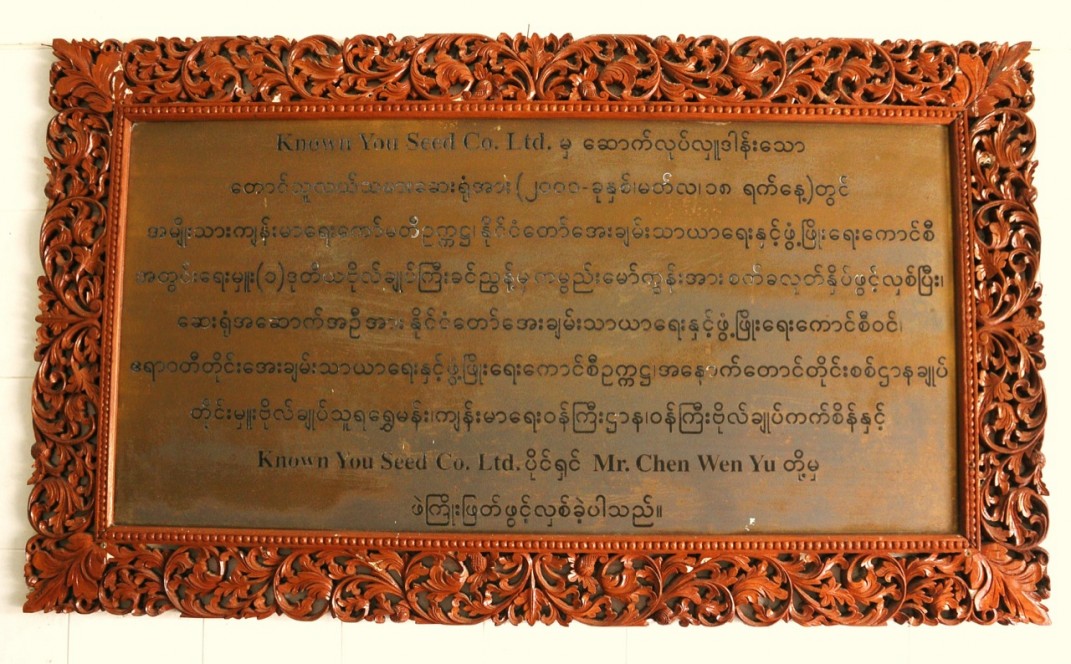 Known You Seed Co. Ltd. မှ ဆောက်လုပ်လှူဒါန်းသော
တောင်သူလယ်သမားဆေးရုံအား (၂၀၀၀-ခုနှစ်၊မတ်လ၊၁၈ ရက်နေ့)တွင်
အမျိုးသားကျန်းမာရေးကော်မတီဥက္ကဋ္ဌ၊ နိုင်ငံတော်အေးချမ်းသာယာရေးနှင့်ဖွံ့ဖြိုးရေးကောင်စီ
အတွင်းရေးမှူး(၁)ဒုတိယဗိုလ်ချုပ်ကြီးခင်ညွန့်မှ ကမ္ပည်းမော်ကွန်းအား စက်ခလုတ်နှိပ်ဖွင့်လှစ်ပြီး၊
ဆေးရုံအဆောက်အဦအား နိုင်ငံတော်အေးချမ်းသာယာရေးနှင့်ဖွံ့ဖြိုးရေးကောင်စီဝင်၊
ဧရာဝတီတိုင်းအေးချမ်းသာယာရေးနှင့်ဖွံ့ဖြိုးရေးကောင်စီဥက္ကဋ္ဌ၊အနောက်တောင်တိုင်းစစ်ဌာနချုပ်
တိုင်းမှူးဗိုလ်ချုပ်သူရရွှေမန်း၊ကျန်းမာရေးဝန်ကြီးဌာန၊ဝန်ကြီးဗိုလ်ချုပ်ကက်စိန်နှင့်
Known You Seed Co. Ltd. ပိုင်ရှင် Mr. Chen Wen Yu တို့မှ
ဖဲကြိုးဖြတ်ဖွင့်လှစ်ခဲ့ပါသည်။